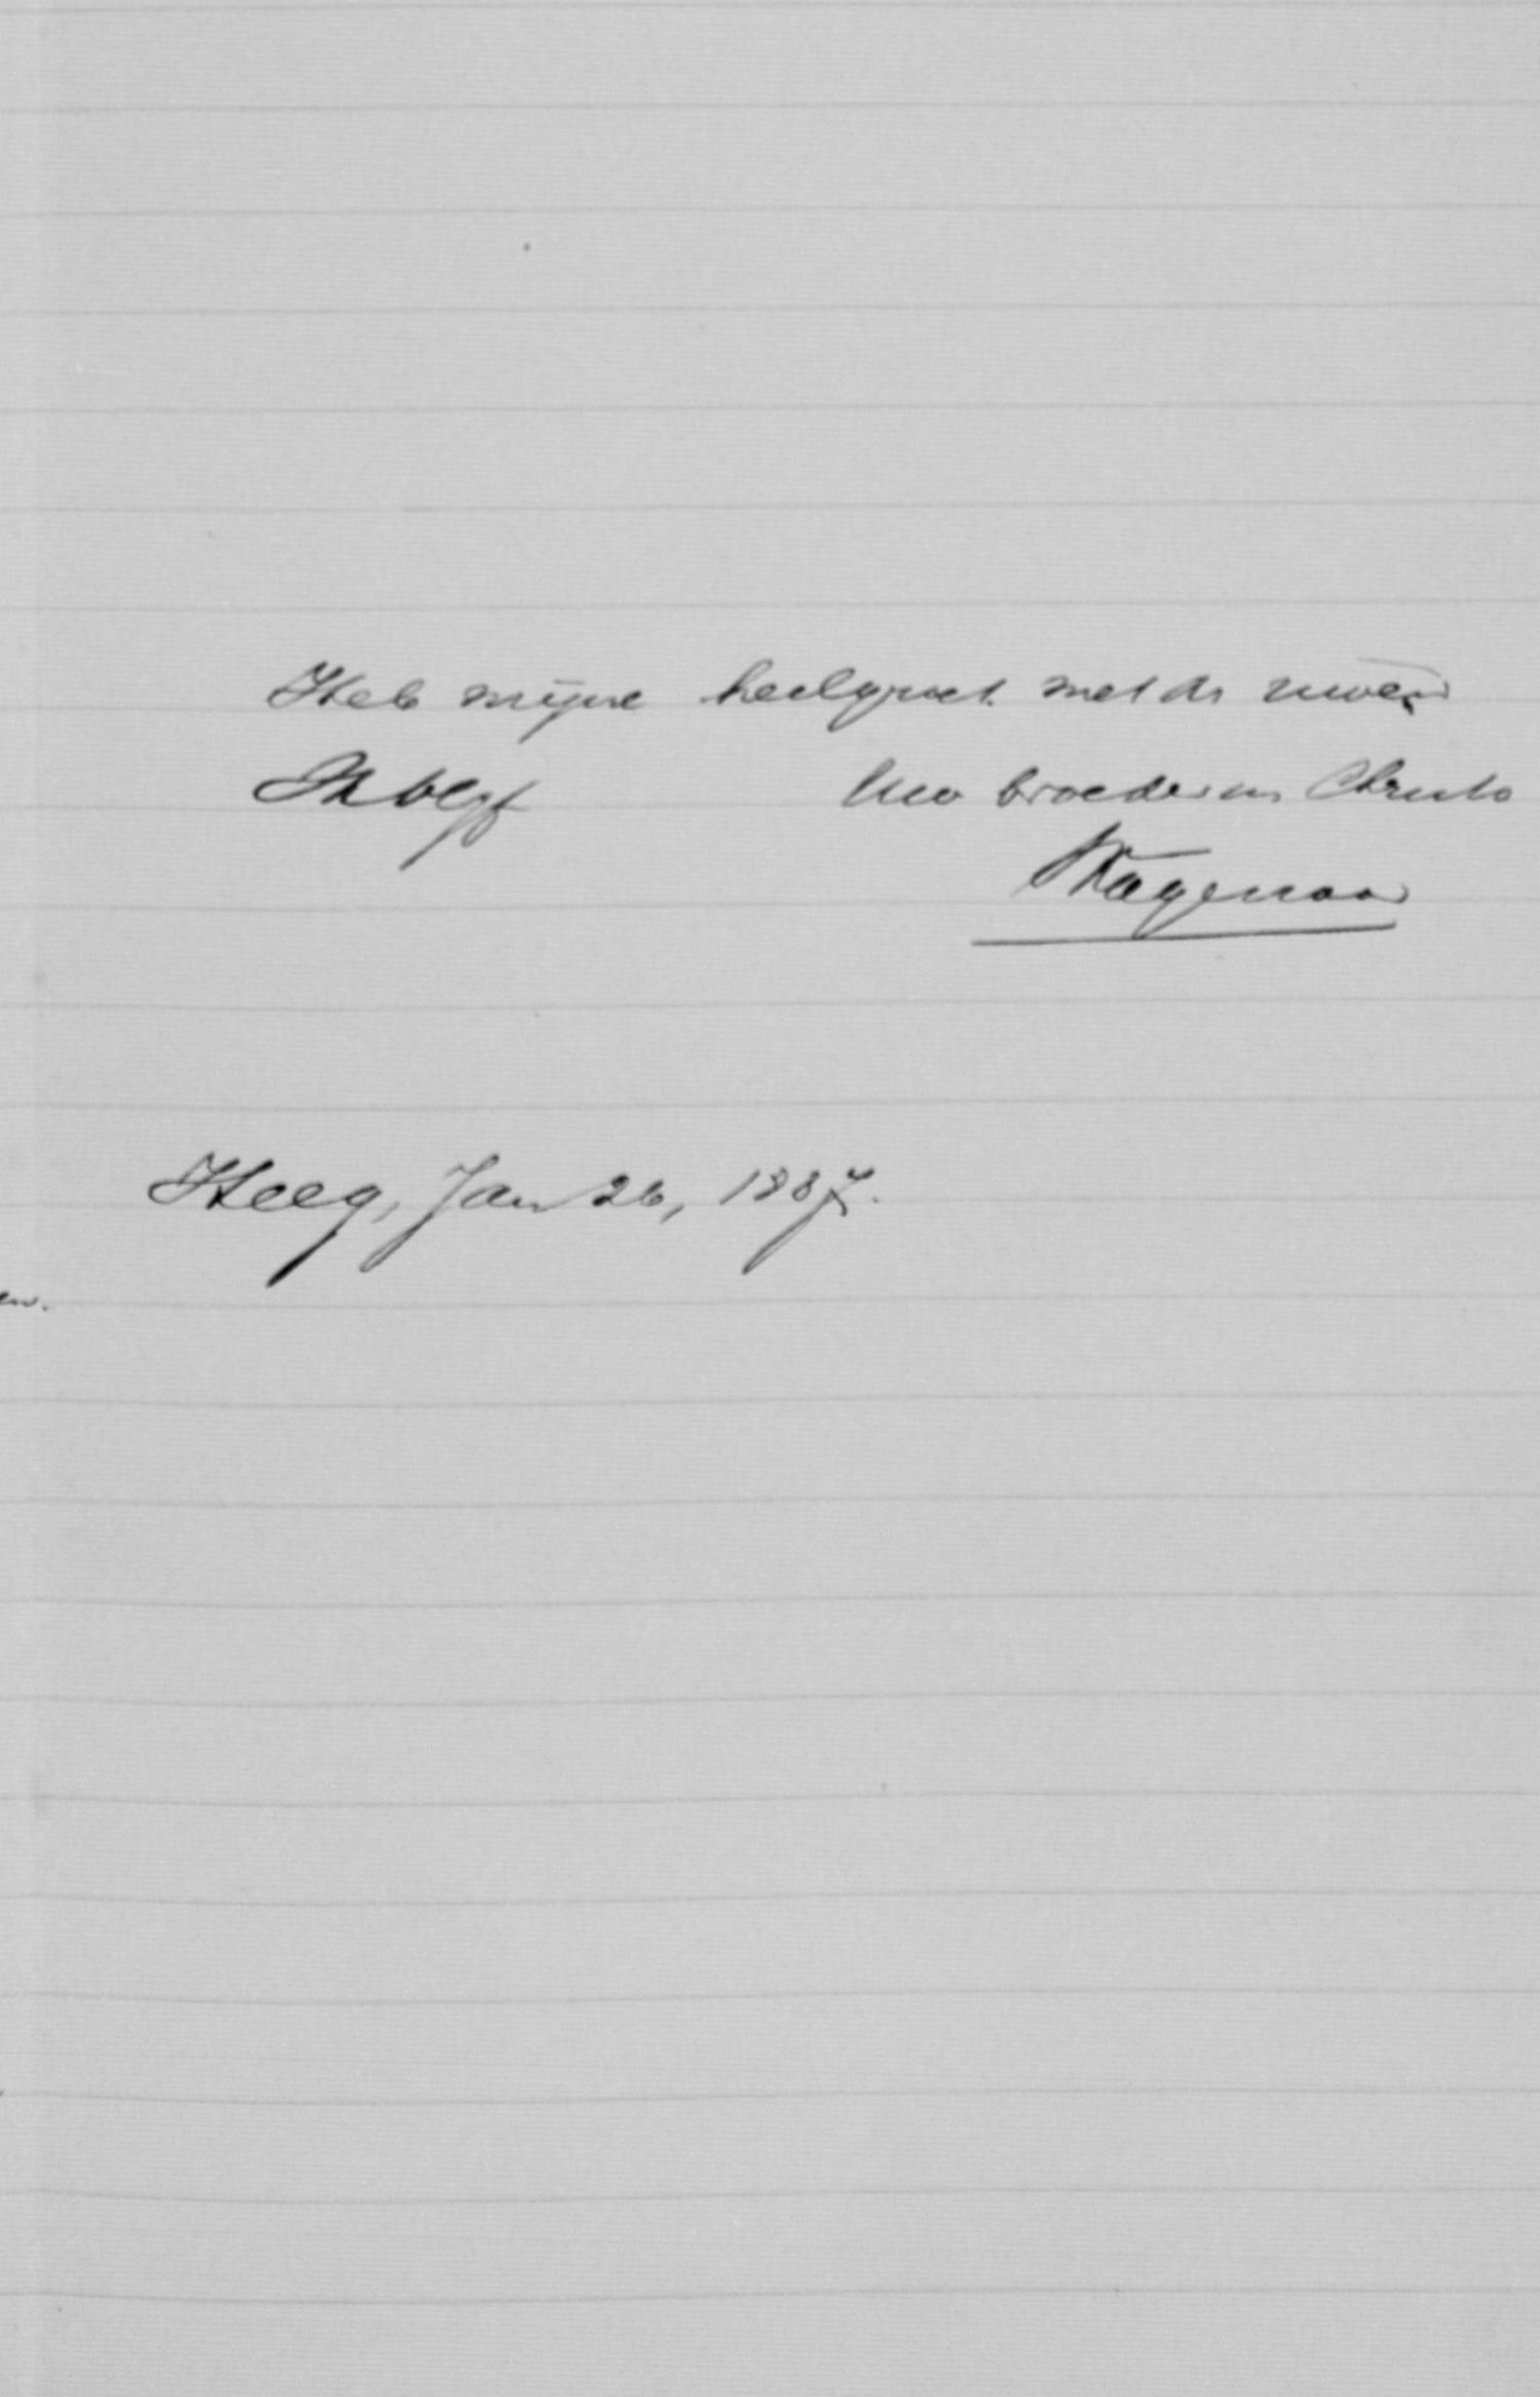 Heb mijne heilgroet met de uwen
Ik blijf Uw broeder in Christo
Wagenaar
Heeg, Jan 26, 1887.